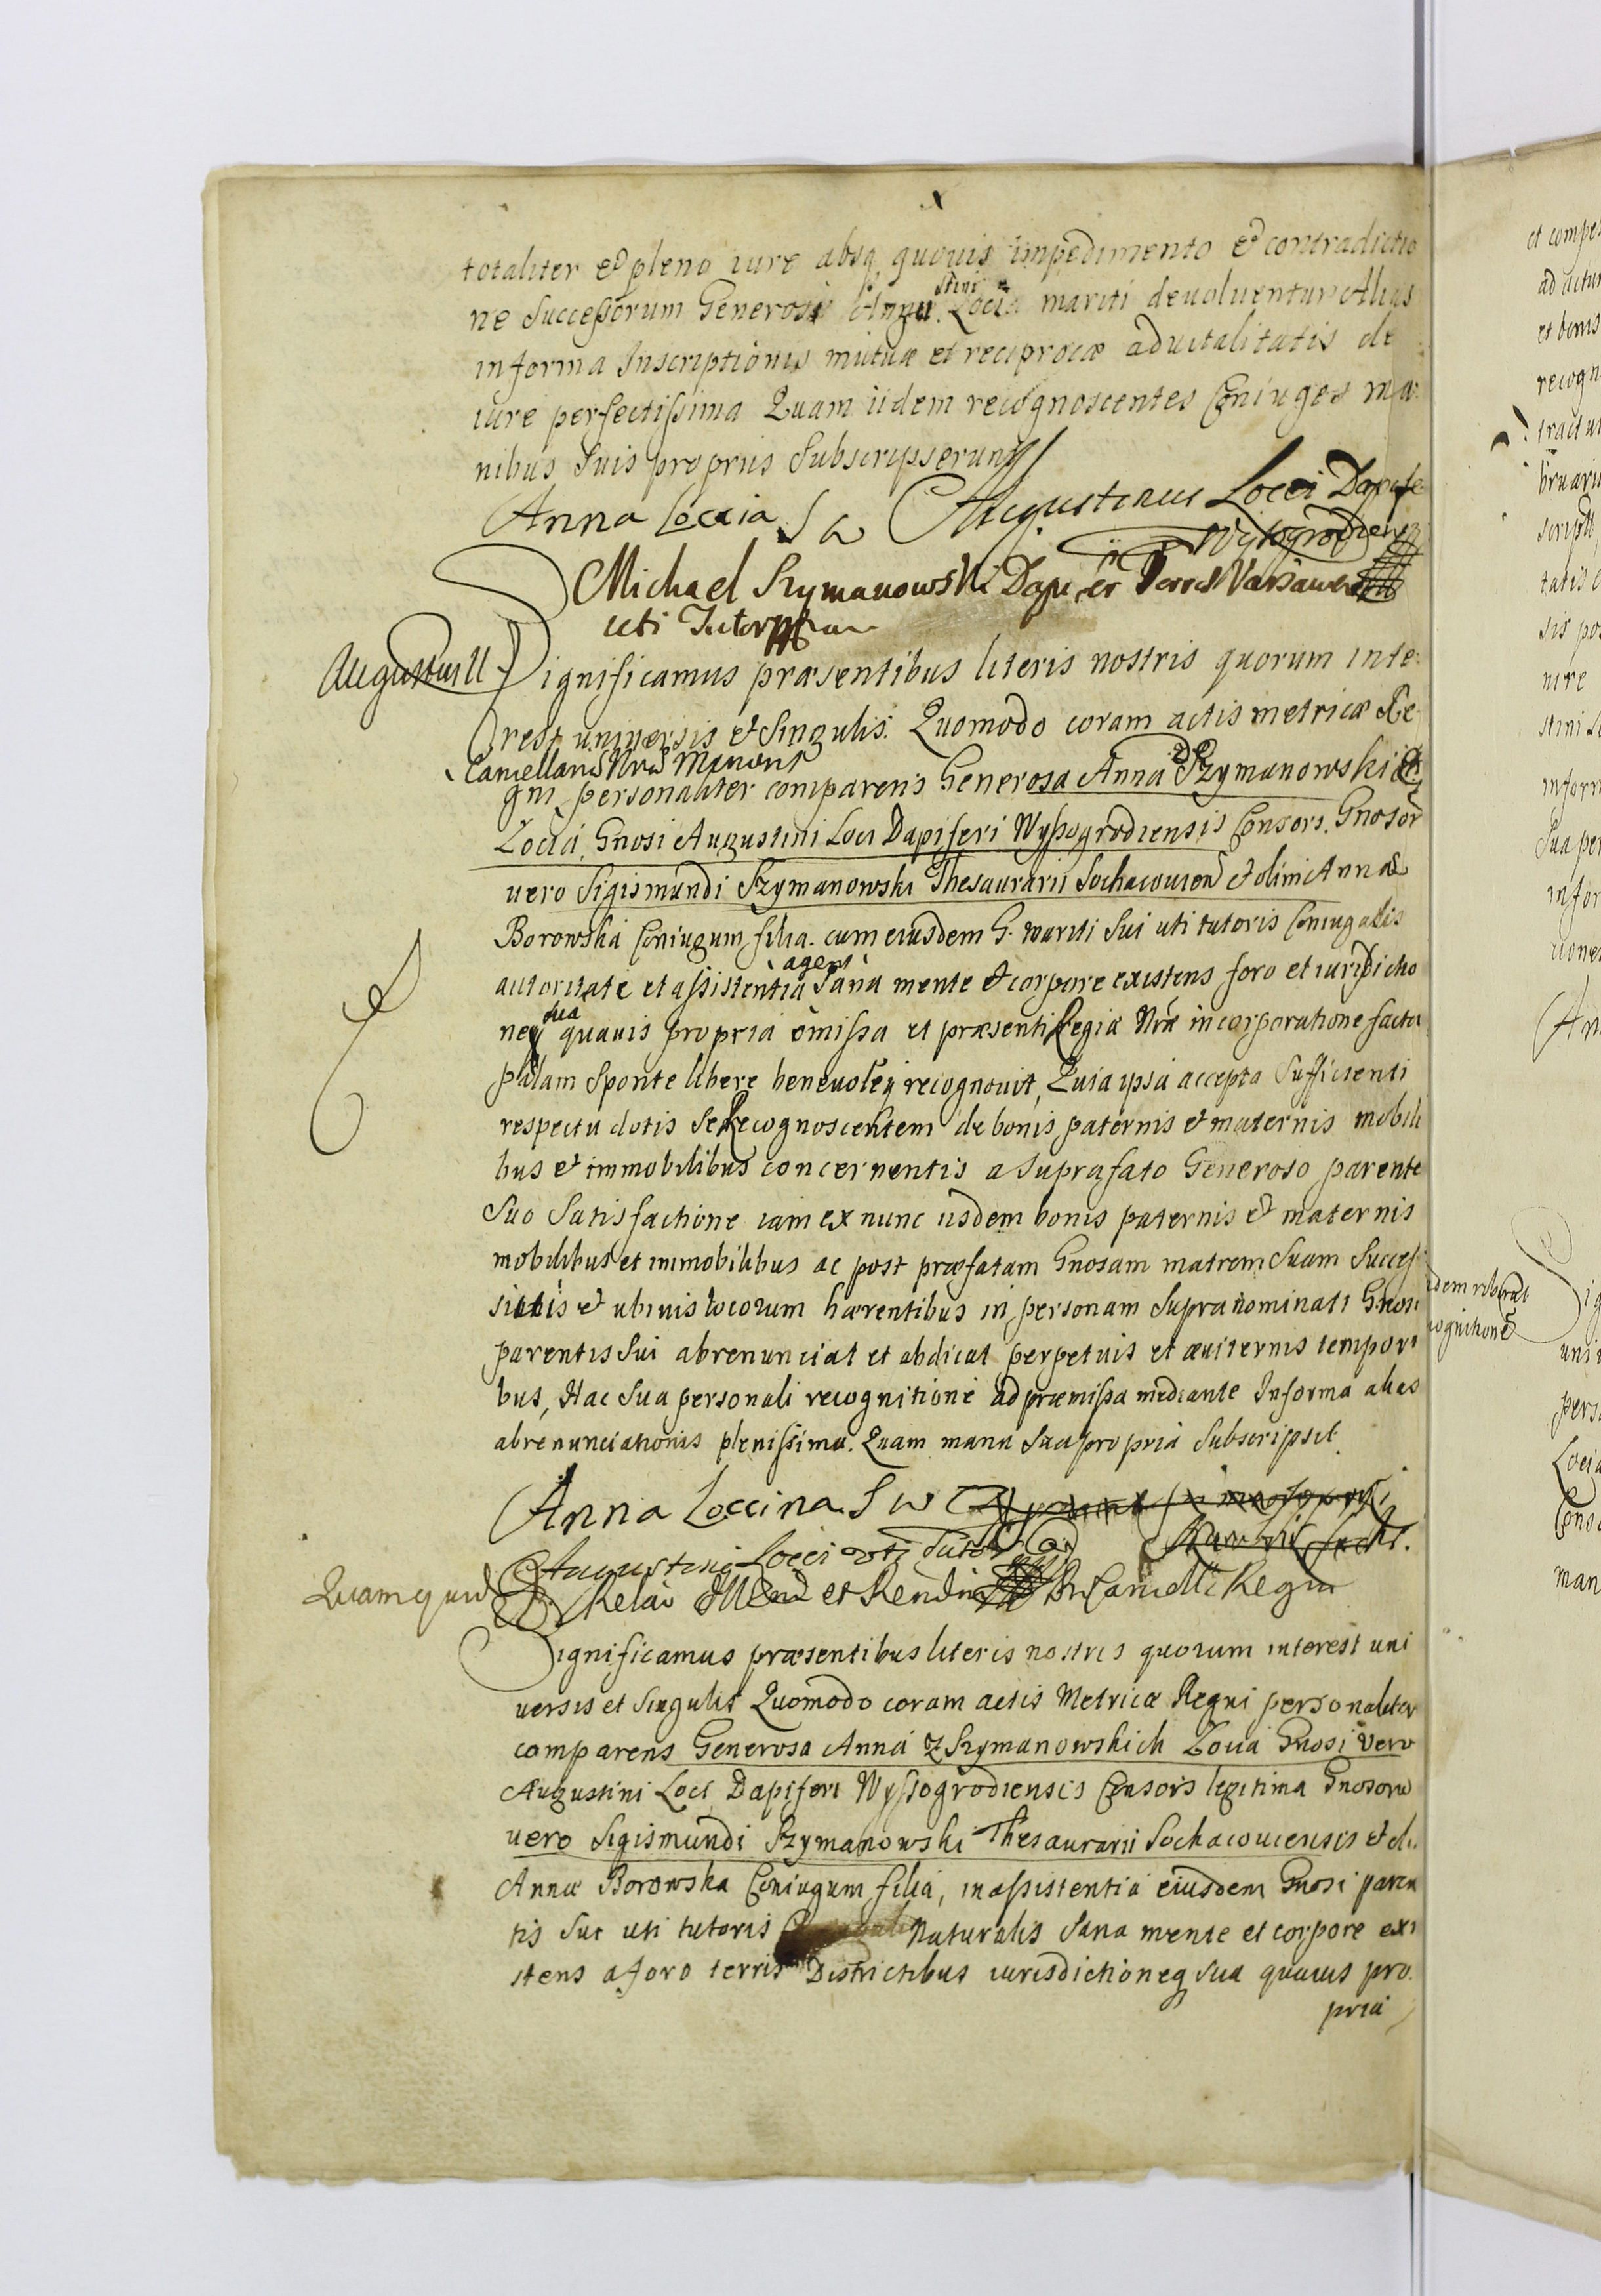 totaliter et pleno iure absq quouis impedimento et contradictio
ne Successorum Generosi Augu stini Locia mariti deuoluentur Alias
in forma Inscriptionis mutuæ et reciprocæ aduitalitatis de
iure perfectissima Quam iidem recognoscentes Coniuges ma
nibus Suis proprijs Subscripserunt
Anna Loccia S W Augustinus Locci Dapife
Wyszogrodien
Michael Szymanowski Dapifer Terræ Varsauien
uti Tutor
Augustini
Significamus præsentibus literis nostris quorum inte
rest uniuersis et Singulis. Quomodo coram actis metricæ Re
Cancellariæ Nræ Maioris
gni personaliter comparens Generosa Anna de Szymanowski
Locia, Gnosi Augustini Loci Dapiferi Wyssogrodiensis Consors. Gnosor
uero Sigismundi Szymanowski Thesaurarii Sochacouien et olim Annæ
Borowska Coniugum filia. cum eiusdem G. mariti Sui uti tutoris Coniugalis
autoritate et assistentia agens Sana mente et corpore existens foro et iurisdictio
neq sua quauis propria omissa et præsenti Regiæ Nræ incorporatione facta
palam Sponte libere beneuoleq recognouit, Quia ipsa accepta Sufficienti
respectu dotis Se Recognoscentem de bonis paternis et maternis mobili
bus et immobilibus concernentis a Suprafato Generoso parente
Suo Satisfactione iam ex nunc iisdem bonis paternis et maternis
mobilibus et immobilibus ac post præfatam Gnosam matrem Suam Succes
siuis et ubiuis locorum hærentibus in personam Supranominati Gnosi
parentis Sui abrenunciat et abdicat perpetuis et æuiternis tempori
bus, Hac Sua personali recognitione ad præmissa mediante In forma alias
abrenunciationis plenissima. Quam manu Sua propria Subscripsit
Anna Loccina S W
Augustini Locci uti Tutor
Quam quid
Relāo Cancell Regni
Significamus præsentibus literis nostris quorum interest uni
uersis et Singulis Quomodo coram actis Metricæ Regni personaliter
comparens Generosa Anna z Szymanowskich Locia Gnosi Vero
Augustini Loci Dapiferi Wyssogrodiensis Consors legitima Gnosoru
uero Sigismundi Szymanowski Thesaurarii Sochacouiensis et oli
Annæ Borowska Coniugum filia, in assistentia eiusdem Gnosi paren
tis Sui uti tutoris Naturalis Sana mente et corpore exi
stens a foro terris Districtibus iurisdictioneq Sua quauis pro
pria